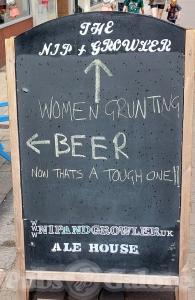 THE
NIP & GROWLER
↑
WOMEN GRUNTING
← BEER
NOW THATS A TOUGH ONE!!
WWW
NIPANDGROWLERUK
ALE HOUSE